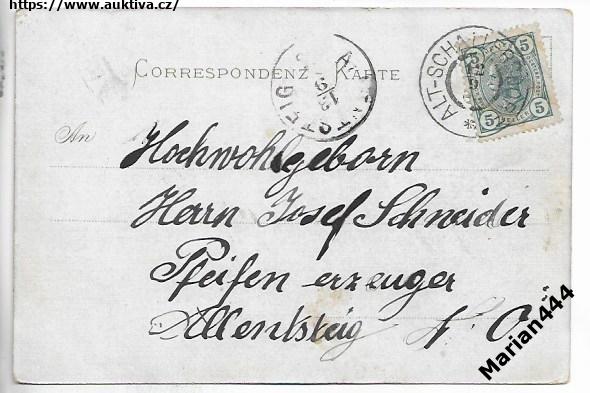 https://www.auktiva.cz/
CORRESPONDENZ-KARTE
ALT-SCHALLERSDORF
5 5
5 5
An
Hochwohlgeborn
Herrn Josef Schneider
Pfeifen erzeuger
Allentsteig N. Ö.
Marian444